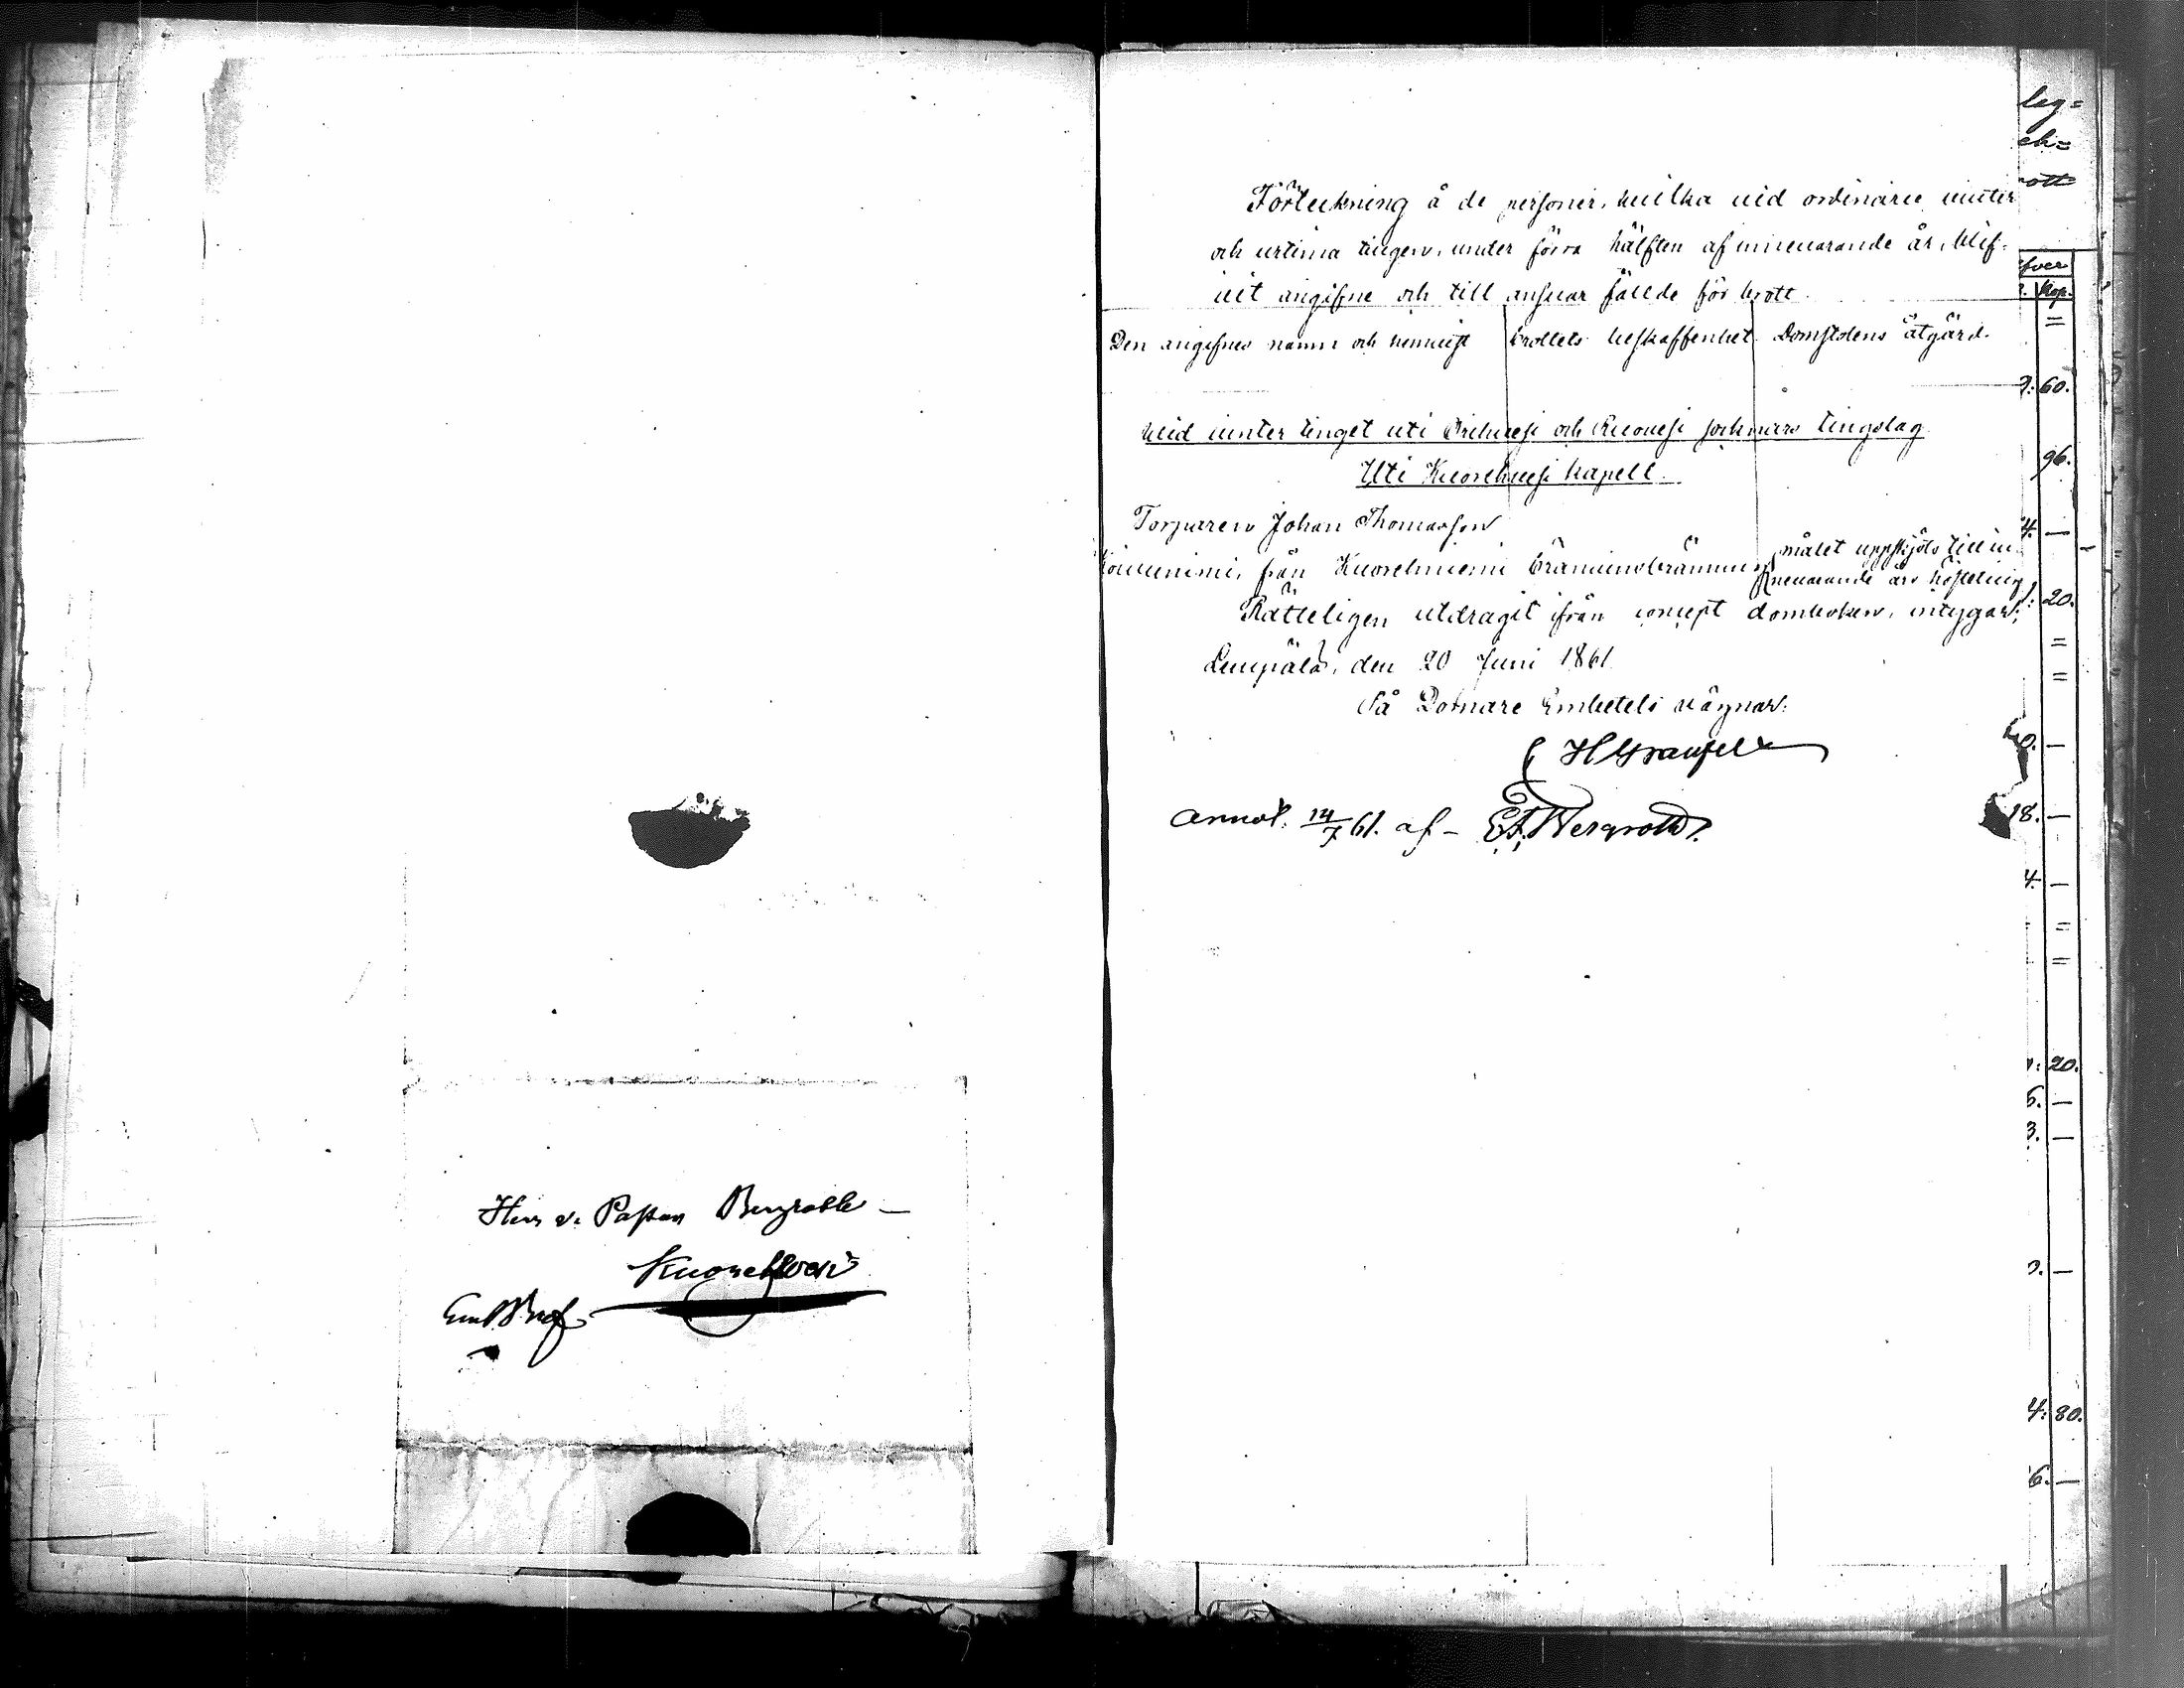 Herr v. Pastor Bergroth —
Kuorehvesi
Emb Bref
Förteckning å de personer, hvilka vid ordinarie vinter
och urtima tingen, under förra hälften af innevarande år, blif-
vit angifne och till ansvar fällde för brott.
Den angifnes namn och hemvist Brottets beskaffenhet. Domstolens åtgärd.
Wid vinter tinget uti Orihvesi och Ruovesi socknars tingslag
Uti Kuorehvesi kapell.
Torparen Johan Thomasson
från Kuorehniemi Bränvinsbränning målet uppskjöts till in-
nevarande års hösteting
Rätteligen utdragit ifrån concept domboken, intygar;
Lempälä, den 20 Juni 1861.
På Domare Embetets vägnar:
Annot. 14/7 61. af — E. A. Bergroth.
leg=
ch=
rott
fver
Kop.
=
60.
96.
4. —
20.
=
=
0. —
18. —
4. —
=
=
20.
5. —
3. —
0. —
4: 80.
6. —